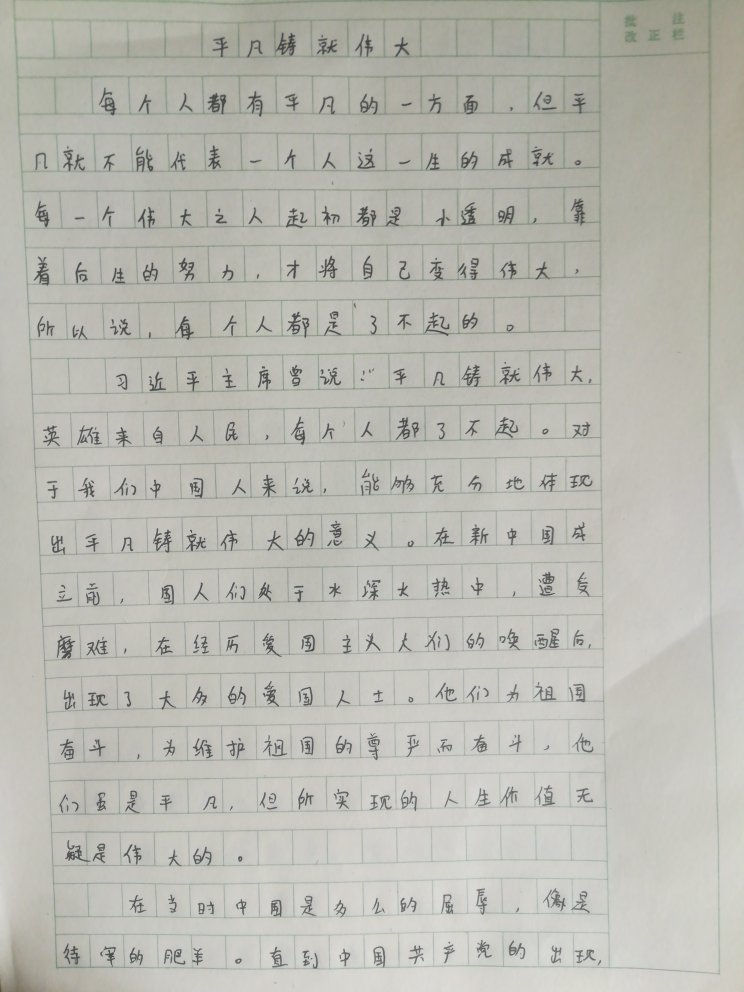 批注
改正栏
平凡铸就伟大
每个人都有平凡的一方面，但平
凡就不能代表一个人这一生的成就。
每一个伟大之人起初都是小透明，靠
着后生的努力，才将自己变得伟大，
所以说，每个人都是了不起的。
习近平主席曾说："平凡铸就伟大，
英雄来自人民，每个人都了不起。对
于我们中国人来说，能够充分地体现
出平凡铸就伟大的意义。在新中国成
立前，国人们处于水深火热中，遭受
磨难，在经历爱国主义人们的唤醒后，
出现了大多的爱国人士。他们为祖国
奋斗，为维护祖国的尊严而奋斗，他
们虽是平凡，但所实现的人生价值无
疑是伟大的。
在当时中国是多么的屈辱，像是
待宰的肥羊。直到中国共产党的出现，